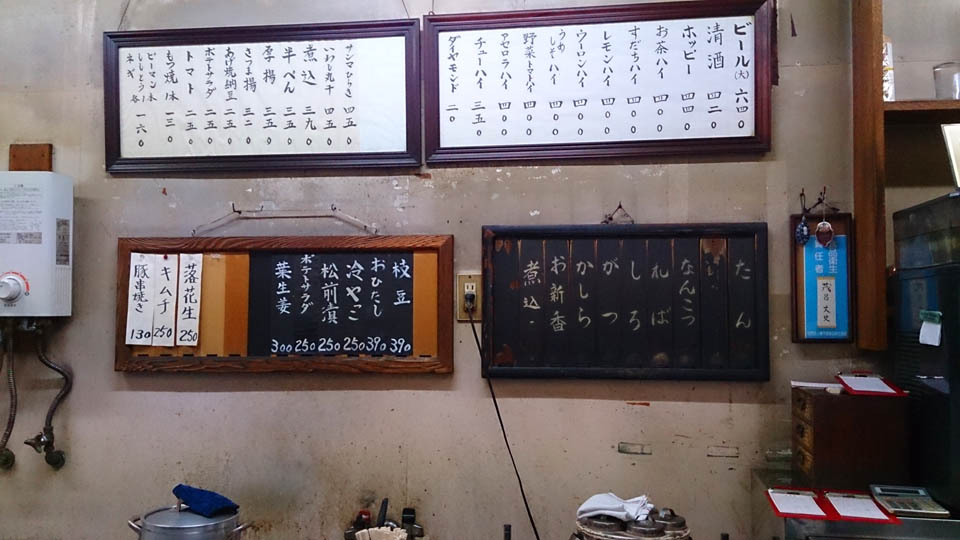 ビール(大) 六四〇
清酒 四二〇
ホッピー 四四〇
お茶ハイ 四〇〇
すだちハイ 四〇〇
レモンハイ 四〇〇
ウーロンハイ 四〇〇
うめしそハイ 四〇〇
野菜トマトハイ 四〇〇
アセロラハイ 四〇〇
チューハイ 三五〇
ダイヤモンド 二〇
サンマひらき 四五〇
いわし丸干 四五〇
煮込 三九〇
半ぺん 三五〇
厚揚 三五〇
さつま揚 三二〇
あげ焼納豆 二五〇
ポテトサラダ 二五〇
トマト 二五〇
もつ焼 1本 一三〇
ピーマン 1本
ししとう 各1
ネギ 一六〇
枝豆 390
おひたし 390
冷やっこ 250
松前漬 250
ポテトサラダ 250
葉生姜 300
落花生 250
キムチ 250
豚串焼き 130
たん
なんこつ
れば
しろ
がつ
かしら
お新香
煮込